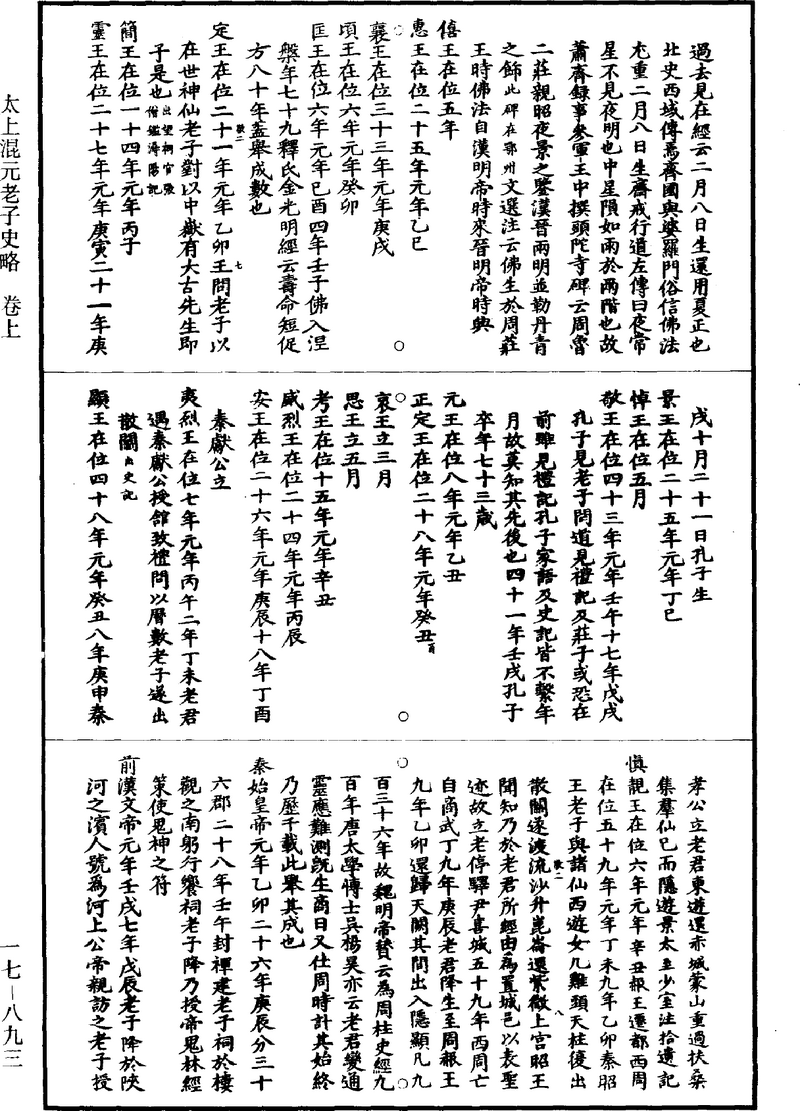 過去見在經云二月八日生還用夏正也
北史西域傳焉耆國與婆羅門俗信佛法
尤重二月八日生齋戒行道左傳曰夜常
星不見夜明也中星隕如雨於兩階也故
蕭齊錄事參軍王中撰頭陀寺碑云周魯
二莊親昭夜景之鑒漢晉兩明並勒丹青
之飾此碑在鄂州文選注云佛生於周莊
王時佛法自漢明帝時來晉明帝時興
僖王在位五年
惠王在位二十五年元年乙巳
襄王在位三十三年元年庚戌
頃王在位六年元年癸卯
匡王在位六年元年己酉四年壬子佛入涅
槃年七十九釋氏金光明經云壽命短促
方八十年蓋舉成數也
定王在位二十一年元年乙卯王問老子以
在世神仙老子對以中嶽有大古先生即
子是也出
簡王在位一十四年元年丙子
靈王在位二十七年元年庚寅二十一年庚
太上混元老子史略 卷上
戌十月二十一日孔子生
景王在位二十五年元年丁巳
悼王在位五月
敬王在位四十三年元年壬午十七年戊戌
孔子見老子問道見禮記及莊子或恐在
前雖見禮記孔子家語及史記皆不繫年
月故莫知其先後也四十一年壬戌孔子
卒年七十三歲
元王在位八年元年乙丑
正定王在位二十八年元年癸丑
哀王立三月
思王立五月
考王在位十五年元年辛丑
威烈王在位二十四年元年丙辰
安王在位二十六年元年庚辰十八年丁酉
秦獻公立
夷烈王在位七年元年丙午二年丁未老君
遇秦獻公授館致禮問以曆數老子遂出
散關出史記
顯王在位四十八年元年癸丑八年庚申秦
孝公立老君東遊還赤城蒙山重過扶桑
集羣仙已而隱遊景太至少室注拾遺記
慎靚王在位六年元年辛丑赧王遷都西周
在位五十九年元年丁未九年乙卯秦昭
王老子與諸仙西遊女几雞頭天柱復出
散關遂渡流沙升崑崙還紫微上宮昭王
聞知乃於老君所經由為置城邑以表聖
迹故立老停驛尹喜城五十九年西周亡
自商武丁九年庚辰老君降生至周赧王
九年乙卯還歸天闕其間出入隱顯凡九
百三十六年故魏明帝贊云為周柱史經九
百年唐太學博士吳楊昊亦云老君變通
靈應難測既生商日又仕周時計其始終
乃歷千載此舉其成也
秦始皇帝元年乙卯二十六年庚辰分三十
六郡二十八年壬午封禪建老子祠於樓
觀之南躬行饗祠老子降乃授帝鬼林經
策使鬼神之符
前漢文帝元年壬戌七年戊辰老子降於陝
河之濱人號為河上公帝親訪之老子授
一七—八九三